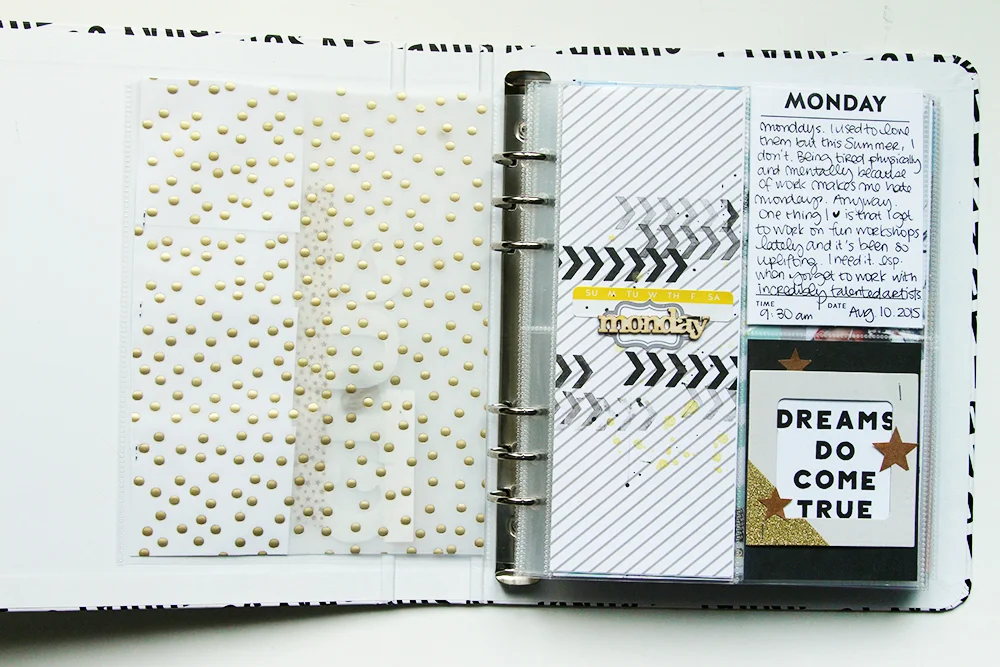 SU M TU W TH F SA
monday
MONDAY
mondays. I used to love
them but this Summer, I
don't. Being tired physically
and mentally because
of work makes me hate
mondays. Anyway.
One thing I ♥ is that I got
to work on fun workshops
lately and it's been so
uplifting. I need it. esp.
when you get to work with
incredibly talented artists
TIME DATE
9:30 am Aug 10. 2015
DREAMS
DO
COME
TRUE